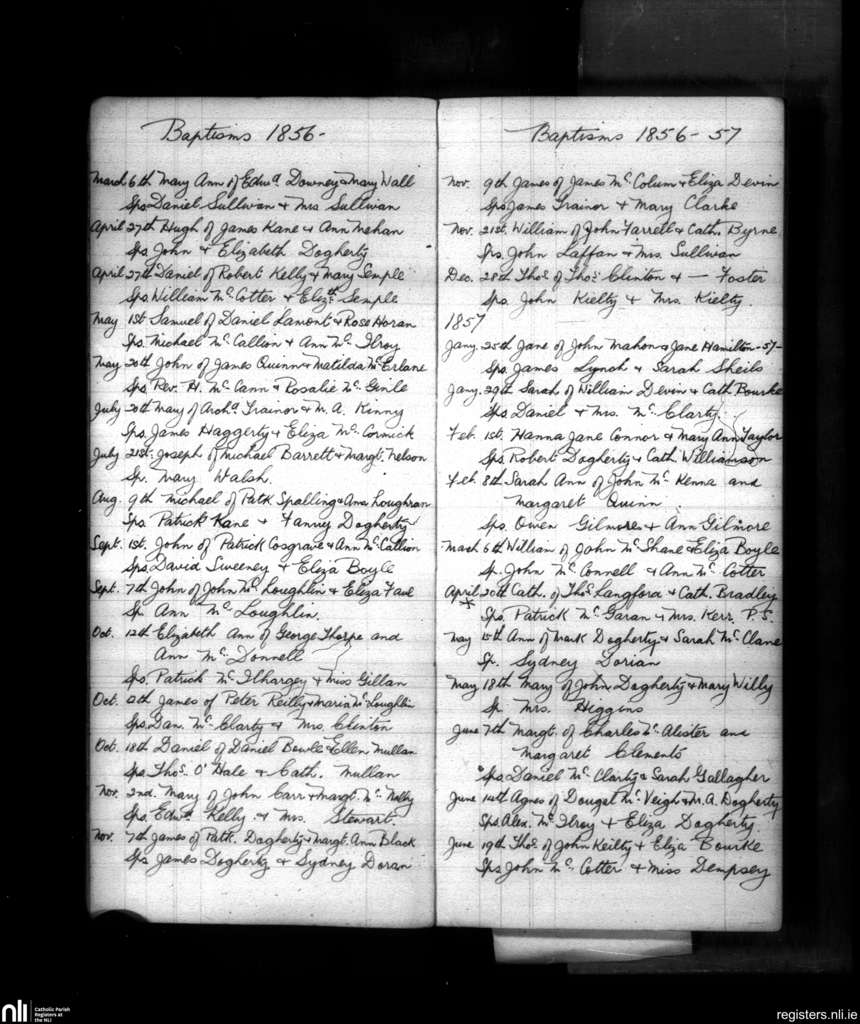 Baptisms 1856-
March 6th Mary Ann of Edwd. Downey & Mary Wall
Sps. Daniel Sullivan & Mrs Sullivan
April 27th Hugh of James Kane & Ann Mehan
Sps. John & Elizabeth Dogherty
April 27th Daniel of Robert Kelly & Mary Semple
Sps. William Mc. Cotter & Elizth. Semple
May 1st Samuel of Daniel Lamont & Rose Horan
Sps. Michael Mc. Callion & Ann Mc. Ilroy
May 20th John of James Quinn & Matilda Mc. Erlane
Sps. Rev. H. Mc. Cann & Rosalie Mc.
July 20th Mary of Archd. Trainor & M. A. Kinny
Sps. James Haggerty & Eliza Mc. Cormick
July 21st. Joseph of Michael Barrett & Margt. Nelson
Sp. Mary Walsh.
Aug. 9th Michael of Patk Spalling & Ann Loughran
Sps. Patrick Kane & Fanny Dogherty
Sept. 1st. John of Patrick Cosgrave & Ann Mc. Callion
Sps. David Sweeney & Eliza Boyle
Sept. 7th John of John Mc. Loughlin & Eliza
Sp. Ann Mc. Loughlin.
Oct. 12th Elizabeth Ann of George Thorpe and
Ann Mc. Donnell
Sps. Patrick Mc. Ilhargey & Miss Gillan
Oct. 12th James of Peter Reilly & Maria Mc. Loughlin
Sps. Dan. Mc. Clarty & Mrs. Clinton
Oct. 18th Daniel of Daniel & Ellen Mullan
Sps. Thos. O' Hale & Cath. Mullan
Nov. 2nd. Mary of John Carr & Margt. Mc. Nally
Sps. Edwd. Kelly & Mrs. Stewart.
Nov. 7th James of Patk. Dogherty & Margt. Ann Black
Sps James Dogherty & Sydney Doran
Baptisms 1856-57
Nov. 9th James of James Mc. Colum & Eliza Devin
Sps James Trainor & Mary Clarke
Nov. 21st. William of John Farrell & Cath. Byrne
Sps. John Laffan & Mrs. Sullivan
Dec. 28th Thos. of Thos. Clinton & — Foster
Sps. John Kielty & Mrs. Kielty.
1857
Jany. 25th Jane of John Mahon & Jane Hamilton -57-
Sps. James Lynch & Sarah Sheils
Jany. 29th Sarah of William Devin & Cath. Bourke
Sps. Daniel & Mrs. Mc. Clarty.
Feb. 1st. Hanna Jane Connor & Mary Ann Taylor
Sps. Robert Dogherty & Cath. Williamson
Feb. 8th. Sarah Ann of John Mc. Kenna and
Margaret Quinn
Sps. Owen Gilmore & Ann Gilmore
March 6th William of John Mc. Shane & Eliza Boyle
Sp. John Mc. Connell & Ann Mc. Cotter
April 20th Cath. of Thos. Langford & Cath. Bradley
* Sps. Patrick Mc. Garan & Mrs. Kerr. P.S.
May 15th Ann of Mark Dogherty & Sarah Mc. Clane
Sp. Sydney Dorian
May 18th Mary of John Dogherty & Mary Willy
Sp. Mrs. Higgins
June 7th Margt. of Charles Mc. Alister and
Margaret Clements
Sps. Daniel Mc. Clarty & Sarah Gallagher
June 14th Agnes of Dougel Mc. Veigh & M. A. Dogherty
Sps. Alex. Mc. Ilroy & Eliza Dogherty.
June 19th Thos. of John Keilty & Eliza Bourke
Sps John Mc. Cotter & Miss Dempsey
nli Catholic Parish
Registers at
the NLI
registers.nli.ie